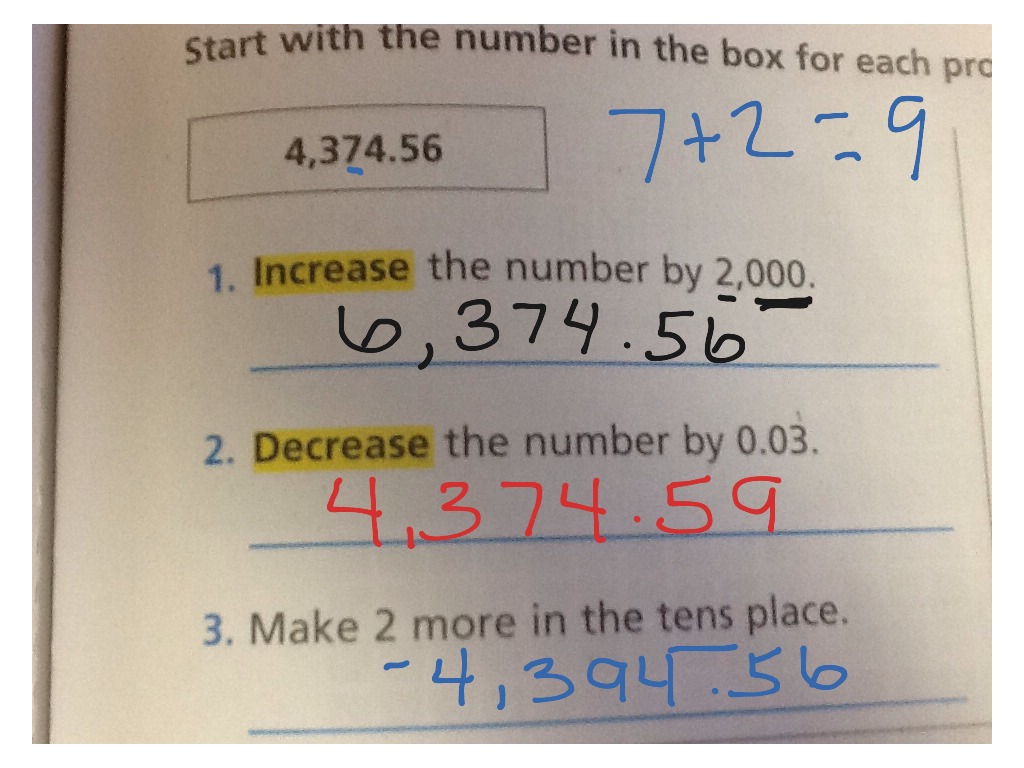 Start with the number in the box for each pro
4,374.56
7+2=9
1. Increase the number by 2,000.
6,374.56
2. Decrease the number by 0.03.
4,374.59
3. Make 2 more in the tens place.
4,394.56